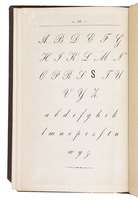 A B C D E F G
H I K L M N
O P R S S T U
V Y Z
a b c d e f g h i k
l m n o p r s t u
w y z